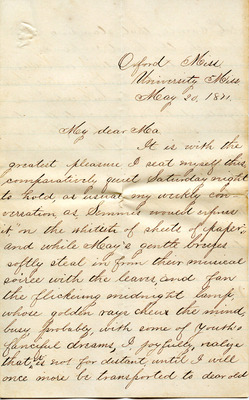 Oxford Miss
University, Miss
May 20, 1871.
My dear Ma.
It is with the
greatest pleasure I seat myself this
comparatively quiet Saturday night
to hold, as usual my weekly con-
versation as Semmes would express
it "on the whitest of sheets of paper",
and while May's gentle breezes
softly steal in from their musical
soiree with the leaves, and fan
the flickering midnight lamp,
whose golden rays cheer the mind,
busy probably, with some of Youth's
fanciful dreams, I joyfully realize
that it is not far distant until I will
once more be transported to dear old